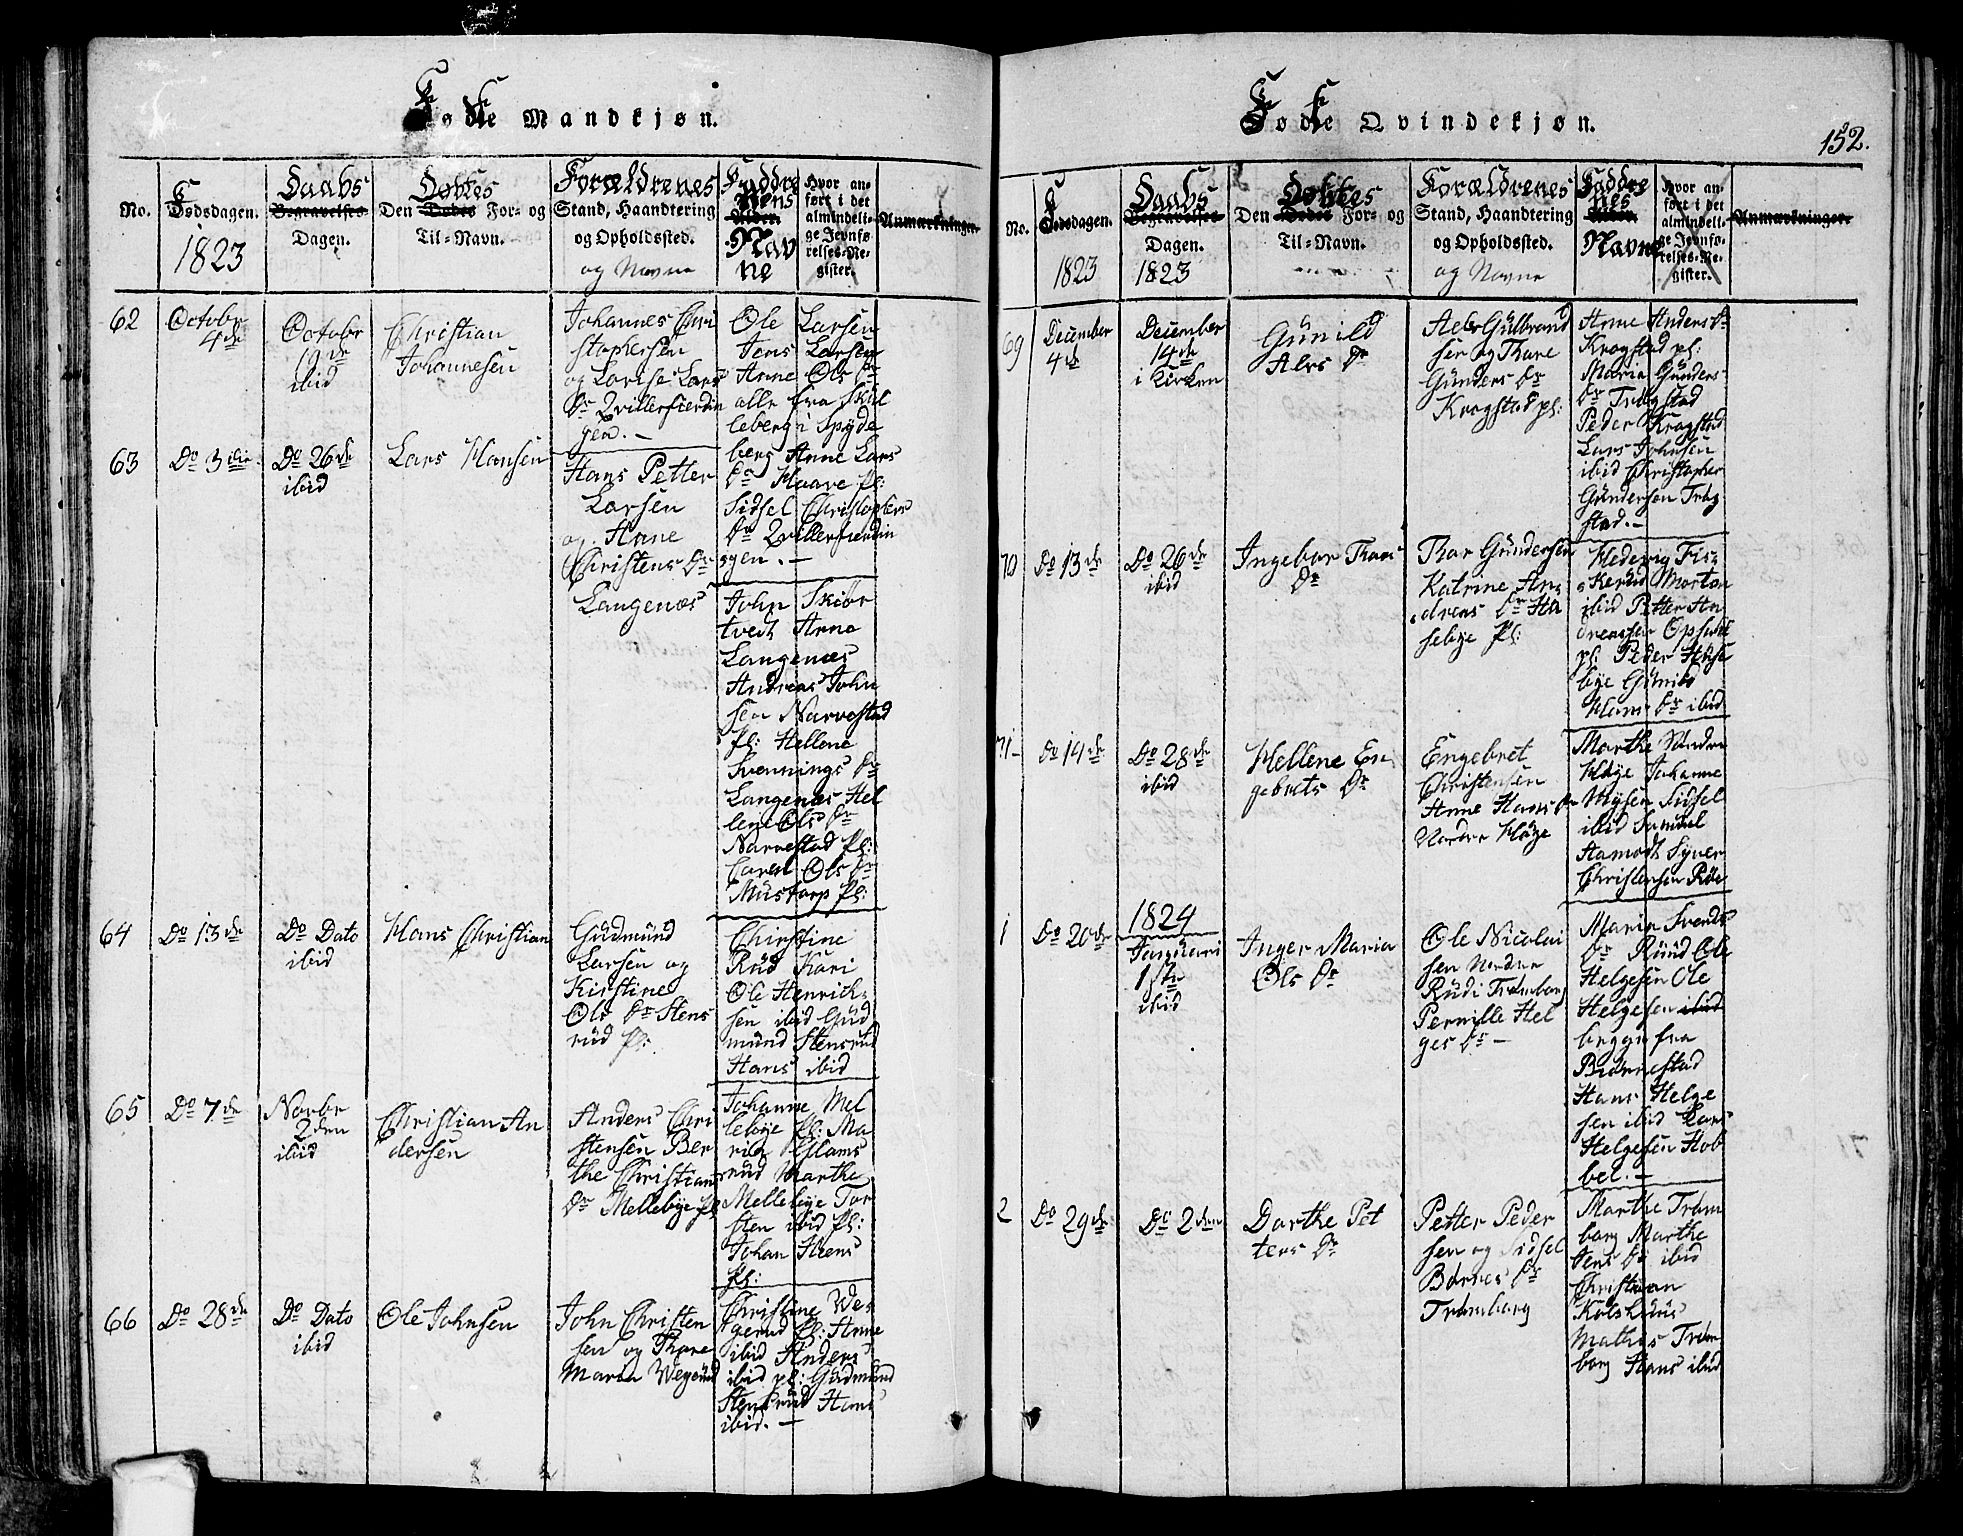 Fødte Mandkjøn.
No.
Fødsdagen.
1823
Daabs
Begravelses-
Dagen.
Døbtes
Den Dødes For- og
Til-Navn.
Forældrenes
Stand, Haandtering
og Opholdssted.
og Navne
Faddre
nes
Alder.
Navn
ne
Hvor an-
ført i det
almindeli-
ge Jevnfø-
relses-Re-
gister.
Anmærkninger.
62
Octobr
4de
Octobr
19de
ibid
Christian
Johannesen
Johannes Chri
stophersen
og Lovise Lars
Dr Qvillerfierdin
gen. –
Ole Larsen
Jens Larsen
Anne Ols Dr
alle fra Skul
leberg i Spyde
berg Anne Lars
Dr Haare Pl:
Sidsel Christophers
Dr Qvillerfierdin
gen. –
63
Do 3die
Do 26de
ibid
Lars Hansen
Hans Petter
Larsen
og Anne
Christens Dr
Langenæs
John Skiør
tvedt Arne
Langenæs
Andreas John
sen Narvestad
pl: Hellene
Svennings Dr
Langenæs Hel
lene Ols Dr
Narvestad Pl:
Caren Ols Dr
Mustorp Pl:
64
Do 13de
Do Dato
ibid
Hans Christian
Gudmund
Larsen og
Kirstine
Ols Dr Stens
rud Pl:
Chirstine
Rud Kari
Ole Henrich-
sen ibid Gud
mund Stensrud
Hans ibid
65
Do 7de
Novbr
2den
ibid
Christian An
dersen
Anders Chri
stensen Ber
the Christians
Dr Mellebye pl
Johanne Mel
lebye Pl: Ma
ria Glams
rud Marthe
Mellebye Tor
sten ibid Pl:
Johan Steens
Pl:
66
Do 28de
Do Dato
ibid
Ole Johnsen
John Christen
sen og Thore
Maria Wegerud
Christine We
gerud Pl: Anne
ibid Anders
ibid pl: Gudmund
Stensrud Hans
ibid. –
Fødte Qvindekjøn.
152.
No.
Fødsdagen.
1823
Daabs
Begravelses-
Dagen.
1823
Døbtes
Den Dødes For- og
Til-Navn.
Forældrenes
Stand, Haandtering
og Opholdssted.
og Navne
Faddre
nes
Alder.
Navne
Hvor an-
ført i det
almindeli-
ge Jevnfø-
relses-Re-
gister.
Anmærkninger.
69
December
4de
December
14de
i Kirken
Gunild
Alvs Dr
Gulbrand
sen og Thore
Gunders Dr
Krogstad pl:
Anne Anders Dr
Krogstad pl:
Maria Gunders
Dr Trøgstad
Peder Krogstad
Lars Johnsen
ibid Christopher
Gundersen Trøg
stad. –
70
Do 13de
Do 26de
ibid
Ingebor Thors
Dr
Thor Gundersen
Katrine An-
drens Dr Ha
sebye Pl:
Hedevig Fis-
kerud Morten
ibid Petter An
drensen Opsahl
pl: Peder Hase
bye Gunild
Hans Dr ibid
71
Do 14de
Do 28de
ibid
Hellene En
gebrets Dr
Engebret
Christensen
Anne Hans Dr
Nordre Høye
Marthe Søndre
Høye Johanne
Mysen Sidsel
ibid Samuel
Aamodt Syver
Christensen Røe
1
Do 20de
1824
Januarii
1ste
ibid
Inger Maria
Ols Dr
Ole Nicolai
sen Nordre
Rud i Trømborg
Pernille Hel
ges Dr –
Maria Svends
Dr Ruud Ole
Helgesen Ole
Helgesen ibid
begge fra
Biørnestad
Hans Helge
sen ibid Lars
Helgesen Hob
bel. –
2
Do 29de
Do 2den
Dorthe Pet
ters Dr
Petter Peder
sen og Sidsel
Børres Dr
Trømborg
Marthe Trøm
borg Marthe
Jens Dr ibid
Christian
Kolshuus
Mathis Trøm
borg Hans ibid